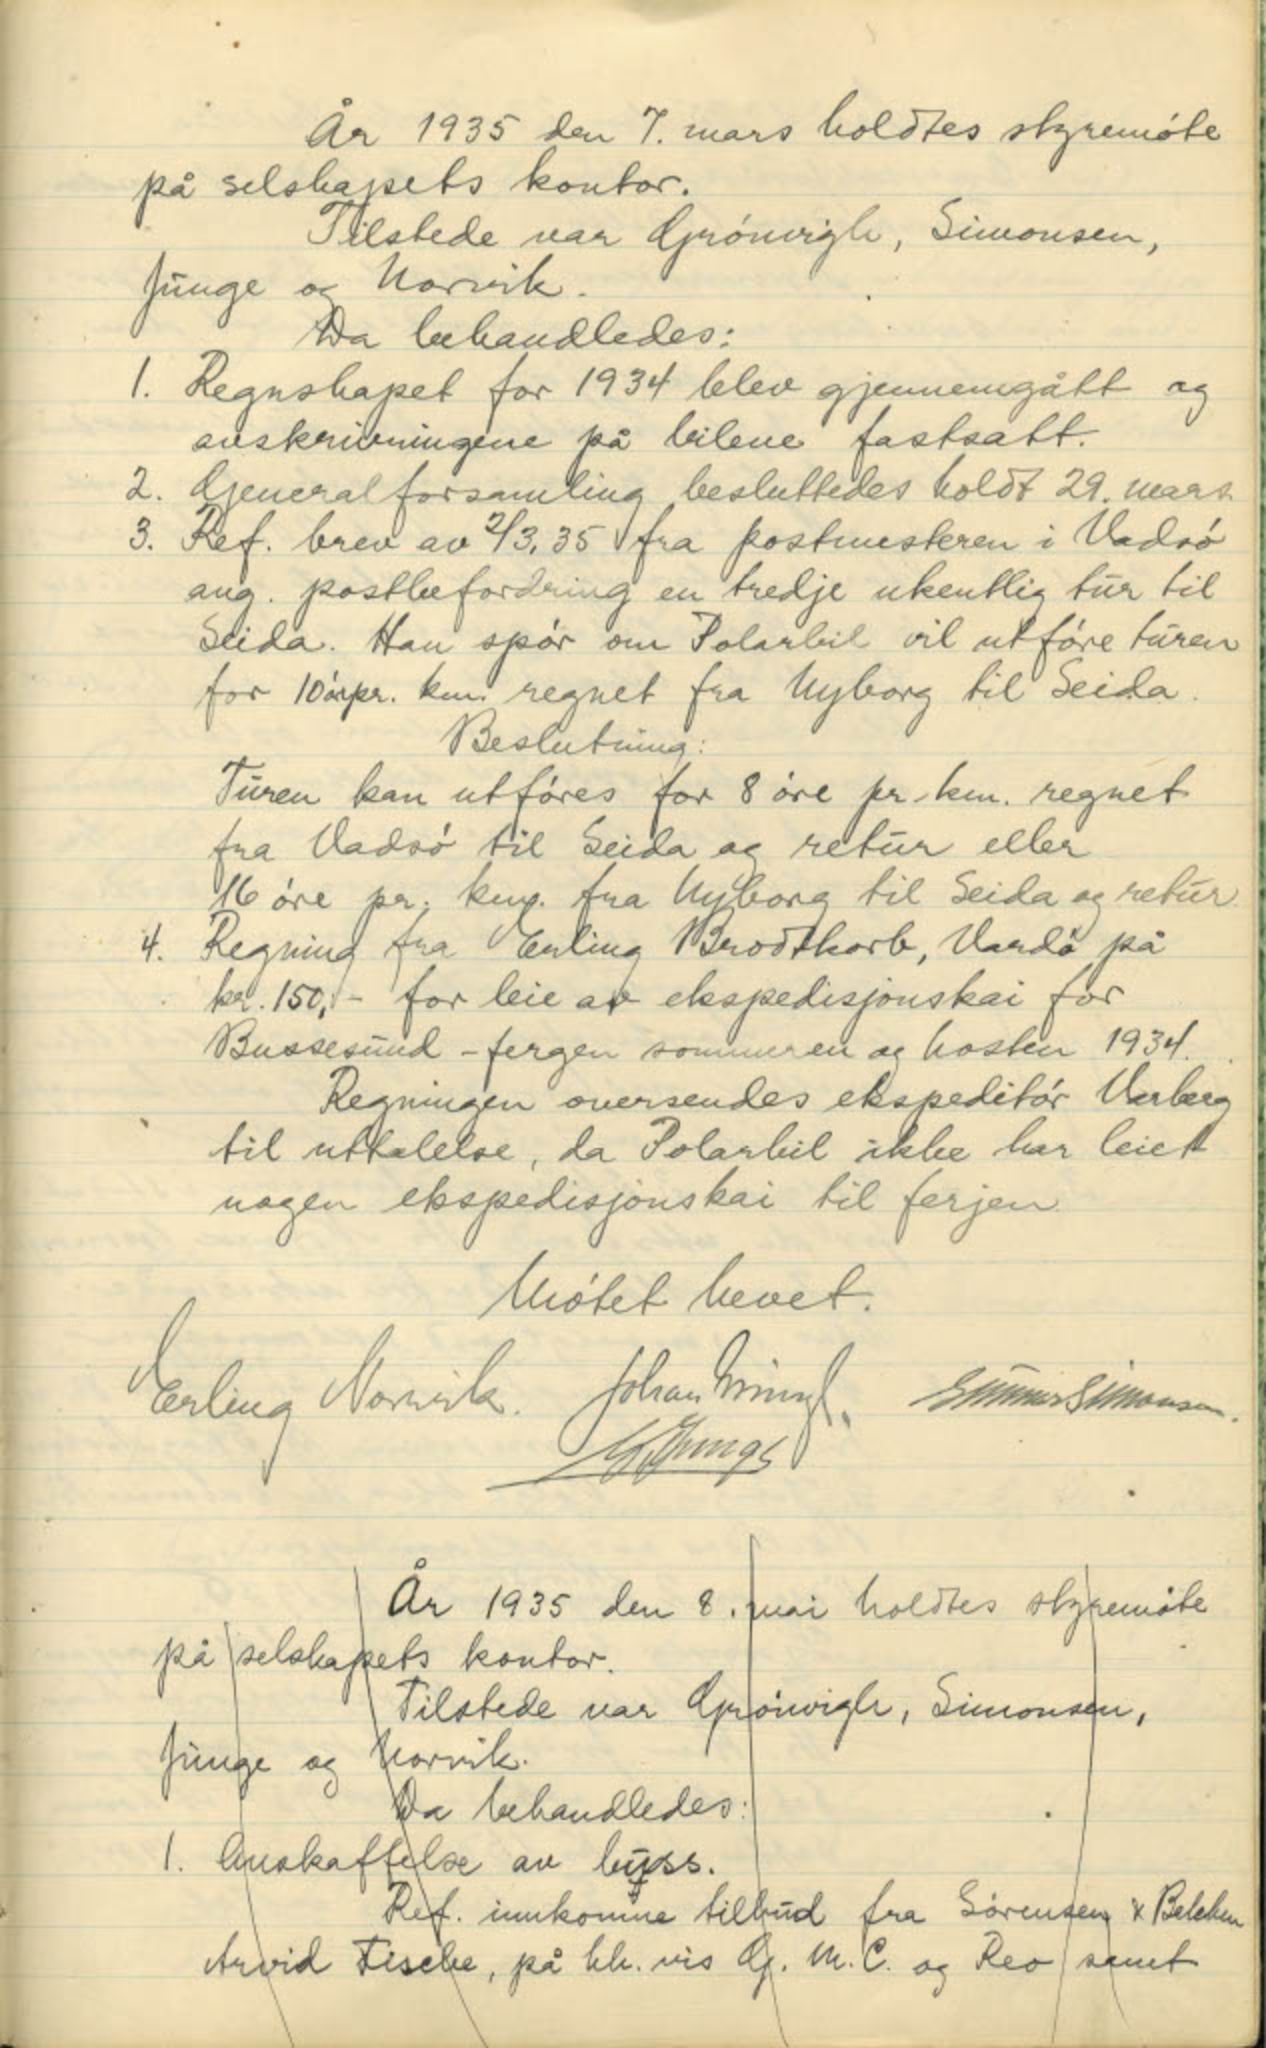 År 1935 den 7. mars holdtes styremöte
på selskapets kontor.
Tilstede var Grönvigh, Simonsen,
Junge og Norvik.
Da behandledes:
1. Regnskapet for 1934 blev gjennemgått og
avskrivningene på bilene fastsatt.
2. Generalforsamling besluttedes holdt 29. mars
3. Ref. brev av 2/3.35 fra postmesteren i Vadsö
ang. postbefordring en tredje ukentlig tur til
Seida. Han spör om Polarbil vil utföre turen
for 10 ör pr. km. regnet fra Nyborg til Seida.
Beslutning:
Turen kan utföres for 8 öre pr. km. regnet
fra Vadsö til Seida og retur eller
16 öre pr. km. fra Nyborg til Seida og retur.
4. Regning fra Erling Brodtkorb, Vardö på
kr. 150,- for leie av ekspedisjonskai for
Bussesund-fergen sommeren og hosten 1934.
Regningen oversendes ekspeditör Varberg
til uttalelse, da Polarbil ikke har leiet
nogen ekspedisjonskai til ferjen
Mötet hevet.
Erling Norvik. Johan Gunnar Simonsen.
Junge
År 1935 den 8. mai holdtes styremöte
på selskapets kontor.
Tilstede var Grönvigh, Simonsen,
Junge og Norvik.
Da behandledes:
1. Anskaffelse av buss.
Ref. innkomne tilbud fra Sörensen & Balchen
Arvid Fische, på hh. vis G. M. C. og Reo samt